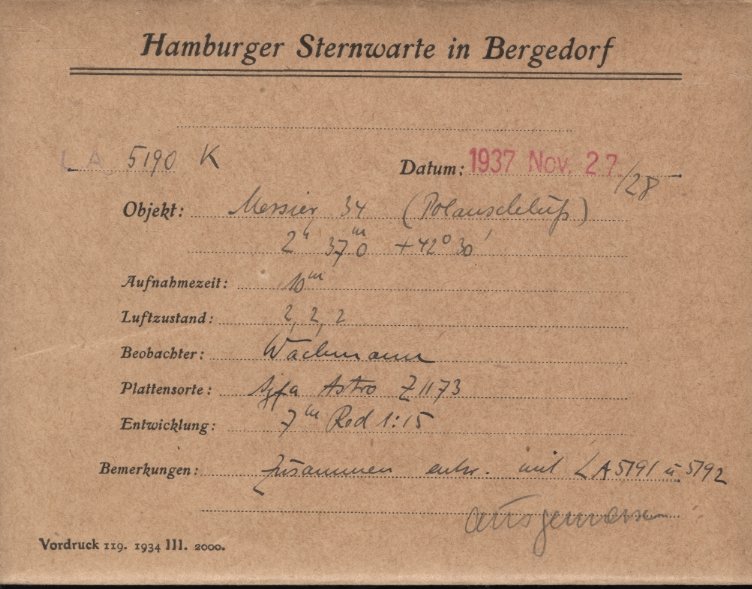 Hamburger Sternwarte in Bergedorf
LA 5190 K Datum: 1937 Nov. 27/28
Objekt: Messier 34 (Polanschluß)
2h 37m0 +42° 30'
Aufnahmezeit: 10m
Luftzustand: 2, 2, 2
Beobachter: Wachmann
Plattensorte: Agfa Astro Z1173
Entwicklung: 7m Rod 1:15
Bemerkungen: Zusammen entw. mit LA 5191 u 5192
ausgemessen
Vordruck 119. 1934 III. 2000.